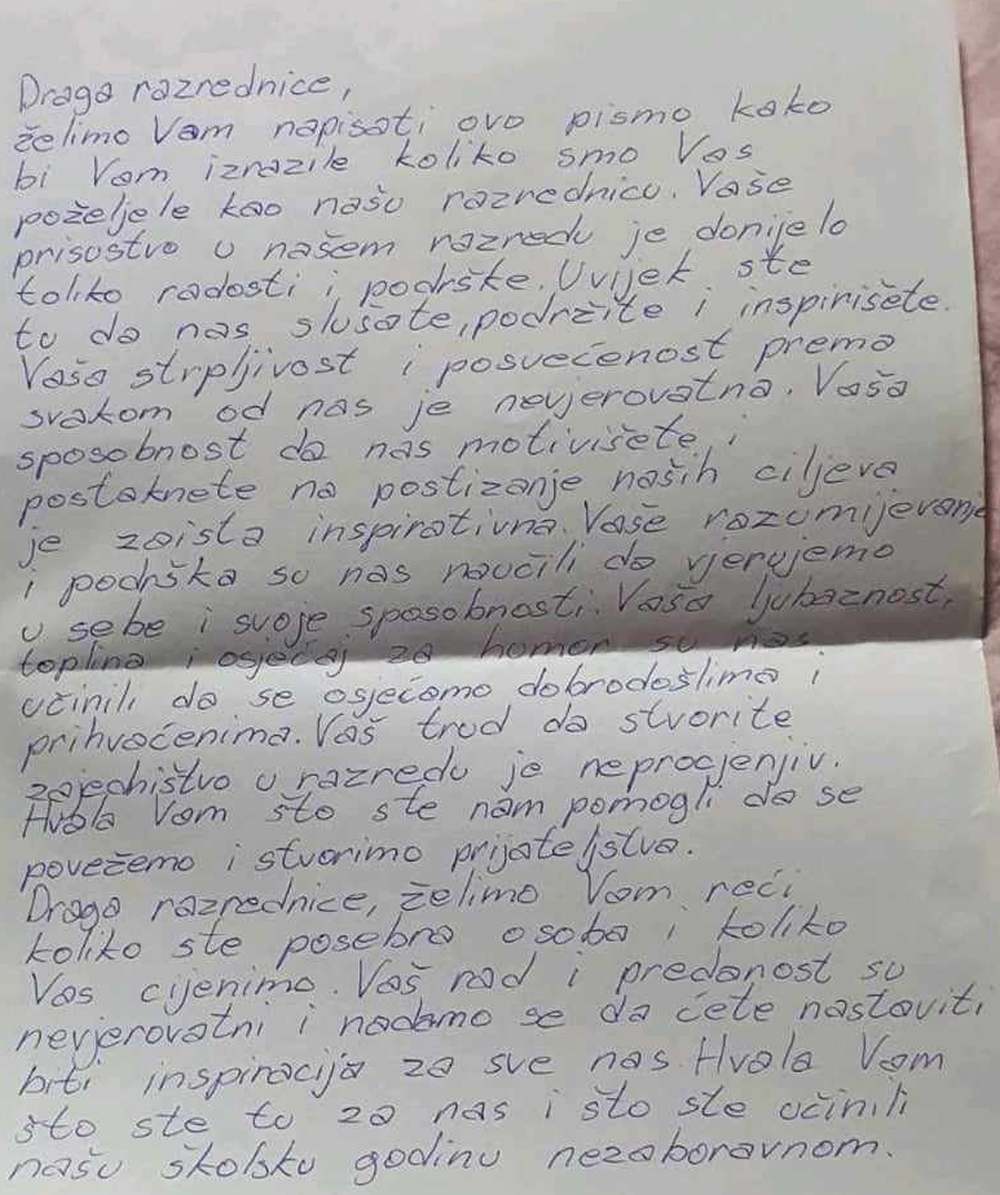 Draga razrednice,
želimo Vam napisati ovo pismo kako
bi Vam izrazile koliko smo Vas
poželjele kao našu razrednicu. Vaše
prisustvo u našem razredu je donijelo
toliko radosti i podrške. Uvijek ste
tu da nas slušate, podržite i inspirišete.
Vaša strpljivost i posvećenost prema
svakom od nas je nevjerovatna. Vaša
sposobnost da nas motivišete i
postaknete na postizanje naših ciljeva
je zaista inspirativna. Vaše razumijevanje
i podrška su nas naučili da vjerujemo
u sebe i svoje sposobnosti. Vaša ljubaznost,
toplina i osjećaj za humor su nas
učinili da se osjećamo dobrodošlima i
prihvaćenima. Vaš trud da stvorite
zajedništvo u razredu je neprocjenjiv.
Hvala Vam što ste nam pomogli da se
povežemo i stvorimo prijateljstva.
Draga razrednice, želimo Vam reći
koliko ste posebna osoba i koliko
Vas cijenimo. Vaš rad i predanost su
nevjerovatni i nadamo se da ćete nastaviti
biti inspiracija za sve nas. Hvala Vam
što ste tu za nas i što ste učinili
našu školsku godinu nezaboravnom.